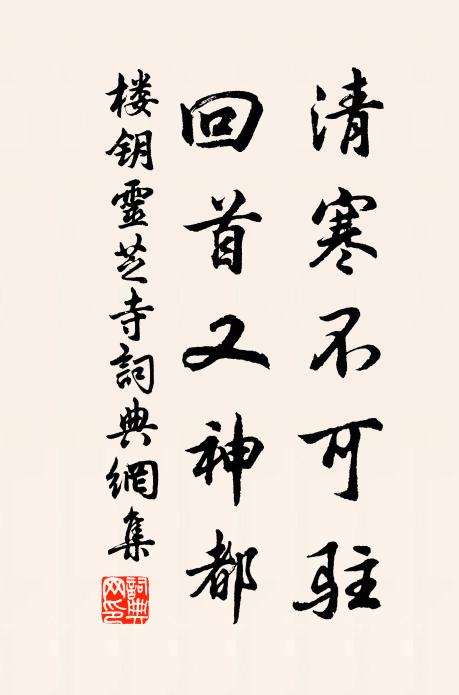 清寒不可驻
回首又神都
楼钥靈芝寺詞典網集
詞典网印